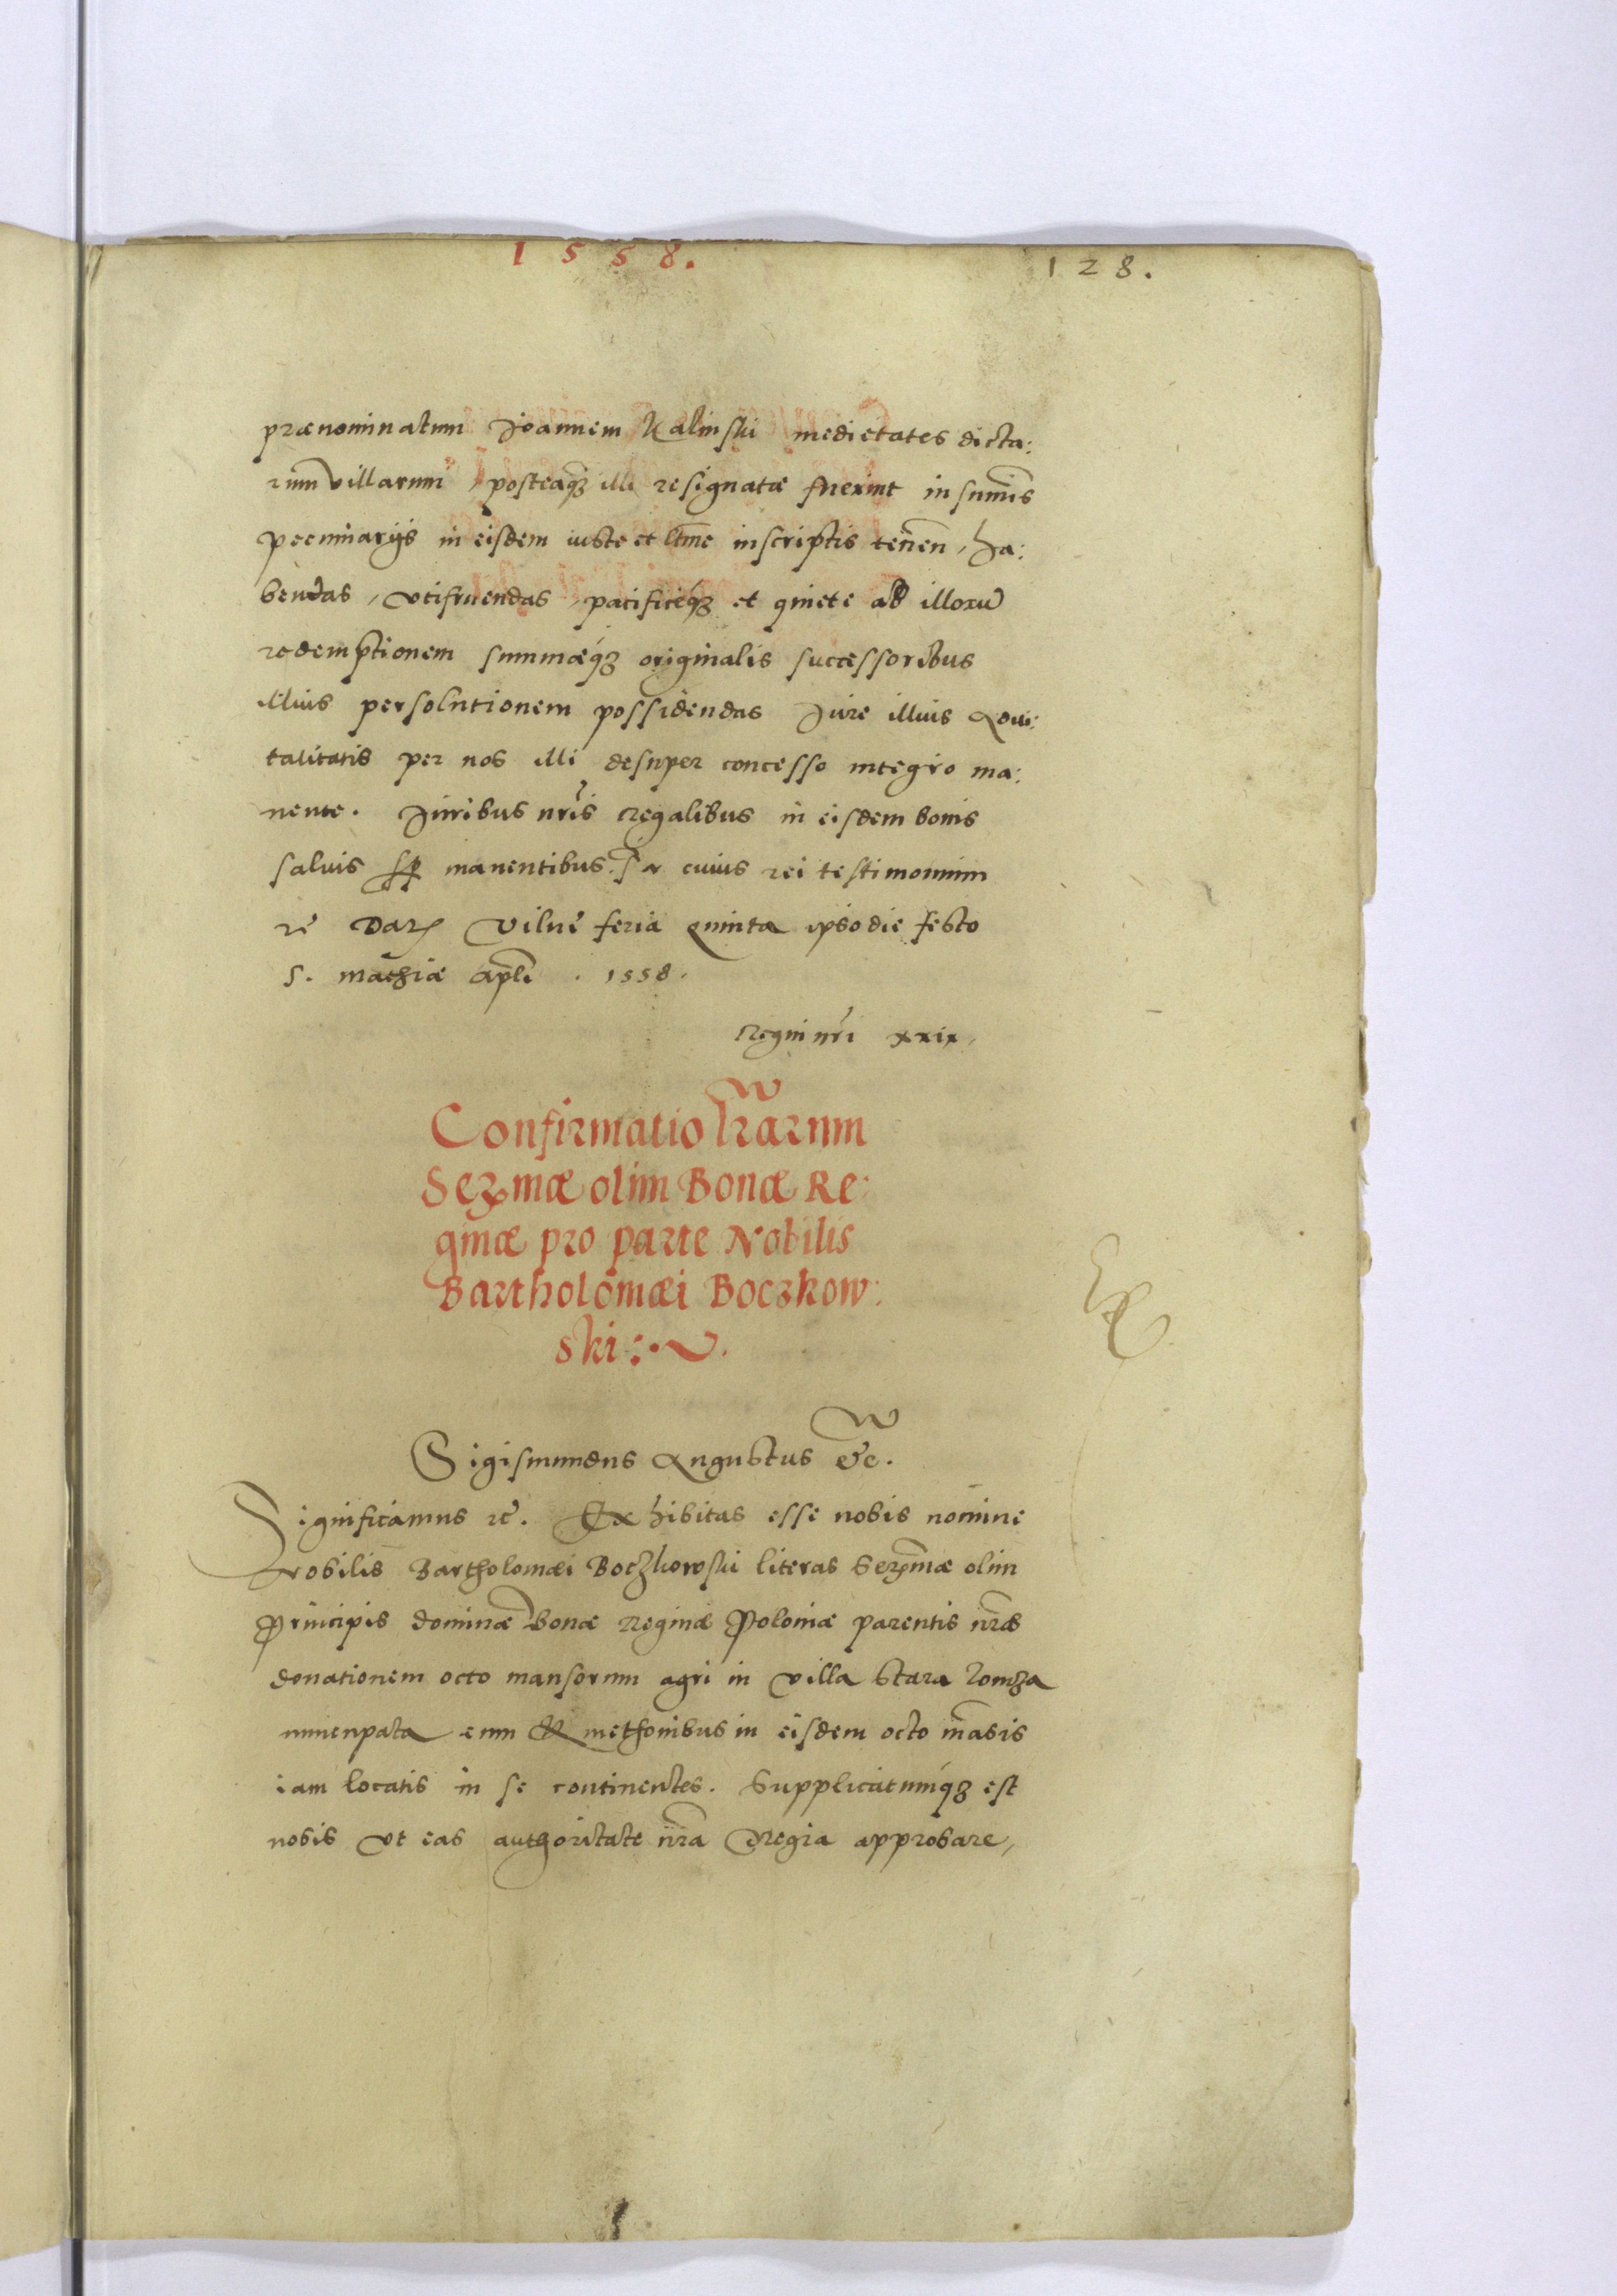 1558.
128.
prænominatum Joannem Kalinski medietates dicta:
rum villarum, posteaq₃ illi resignatæ fuerint in sum̄is
pecuniarijs in eisdem iuste et ltm̄e inscriptis ten̄en, ha:
bendas, vtifruendas, pacificéq₃ et quiete ab illorū
redemptionem summæq́₃ originalis successoribus
illius persolutionem possidendas Jure illius advi:
talitatis per nos illi desuper concesso integro ma:
nente. Juribus nr̄is Regalibus in eisdem bonis
saluis sꝑ manentibus. In cuius rei testimonium
rc̄ Datꝝ Vilnę feria quinta ipso die festo
S. mathiæ apl̄i . 1558.
Regni nr̄i xxix.
Confirmatio l̄rarum
Serꝫmæ olim Bonæ Re:
ginæ pro parte Nobilis
Bartholomæi Boczkow:
ski:.
Sigismundus Augustus &c̄.
Significamus rc̄. Exhibitas esse nobis nomine
Nobilis Bartholomæi Boczkowski literas Serm̄æ olim
Principis dominæ Bonæ Reginæ Poloniæ parentis nr̄æ
donationem octo mansorum agri in villa Stara Lomza
nunenpata cum Kmethonibus in eisdem octo man̄sis
iam locatis in se continentes. Supplicatumq́₃ est
nobis vt eas authoritate nr̄a Regia approbare,